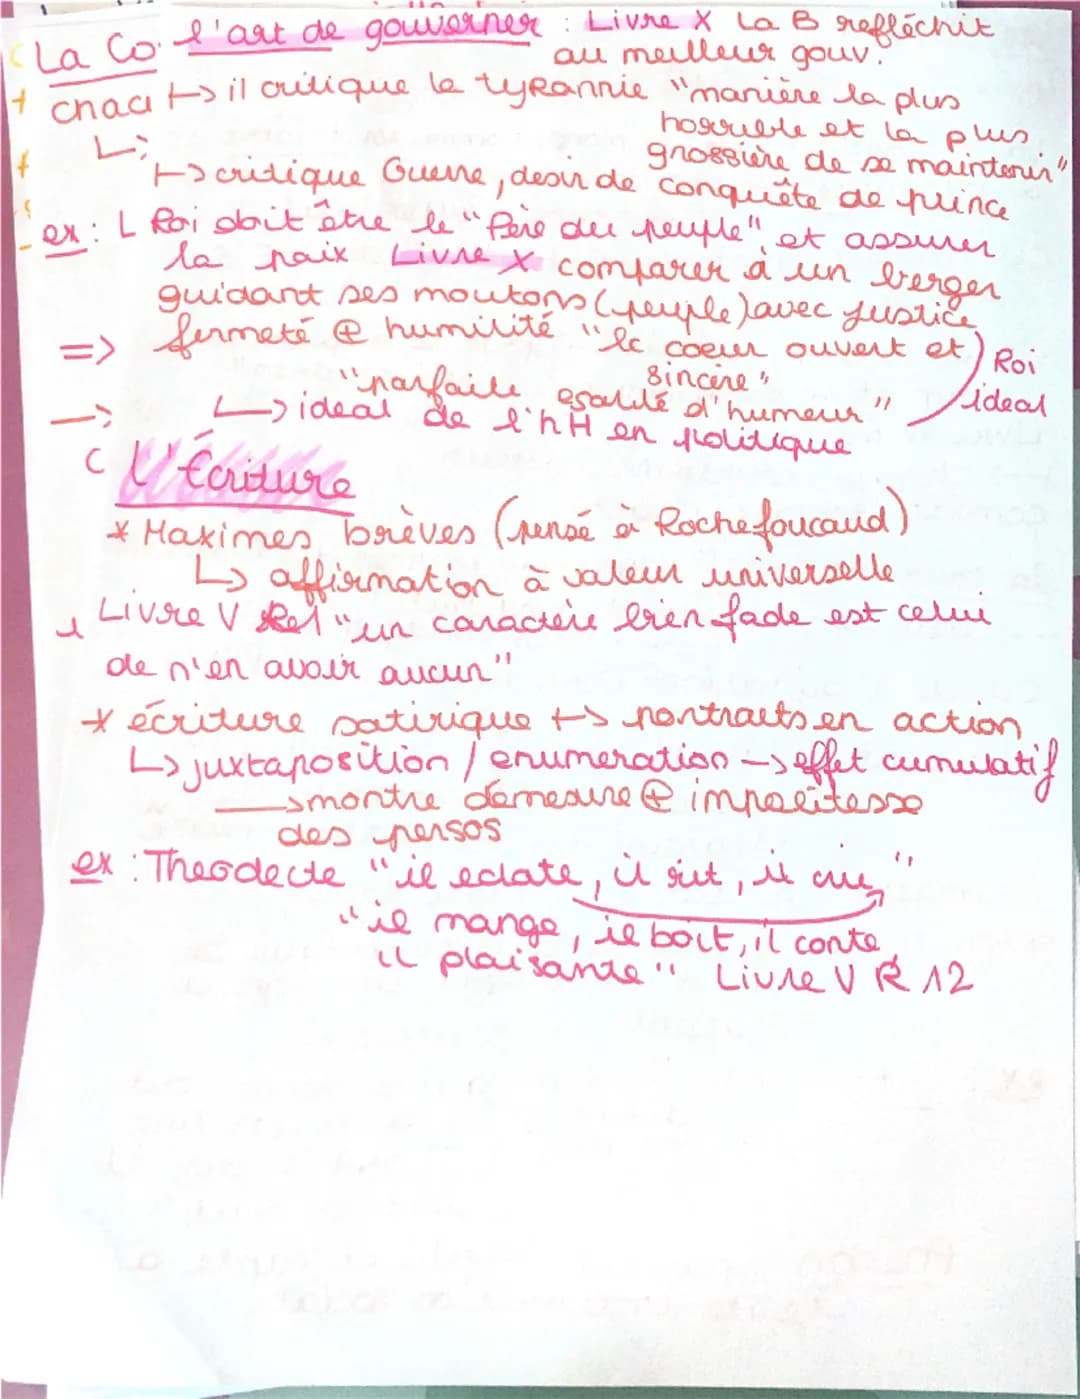 La Co. l'art de gouverner : Livre X La B refléchit
au meilleur gouv.
chaci ↦ il critique la tyrannie "manière la plus
horrible et la plus
grossière de se maintenir"
↦ critique Guerre, desir de conquête de prince
ex : L Roi doit être le "Père du peuple" et assurer
la paix Livre X comparer à un berger
guidant ses moutons (peuple) avec justice
fermeté & humilité "le coeur ouvert et
sincère"
Roi
ideal
=> "parfaite egalité d'humeur"
↳ ideal de l'hH en politique
L'Écriture
* Maximes brèves (pense à Rochefoucaud)
↳ affirmation à valeur universelle
Livre V "un caractère bien fade est celui
de n'en avoir aucun"
* écriture satirique ↦ portraits en action
↳ juxtaposition / enumeration → effet cumulatif
→ montre démesure & impolitesse
des persos
ex : Theodecte "il eclate, il rit, il crie"
"il mange, il boit, il conte
il plaisante" Livre V R 12